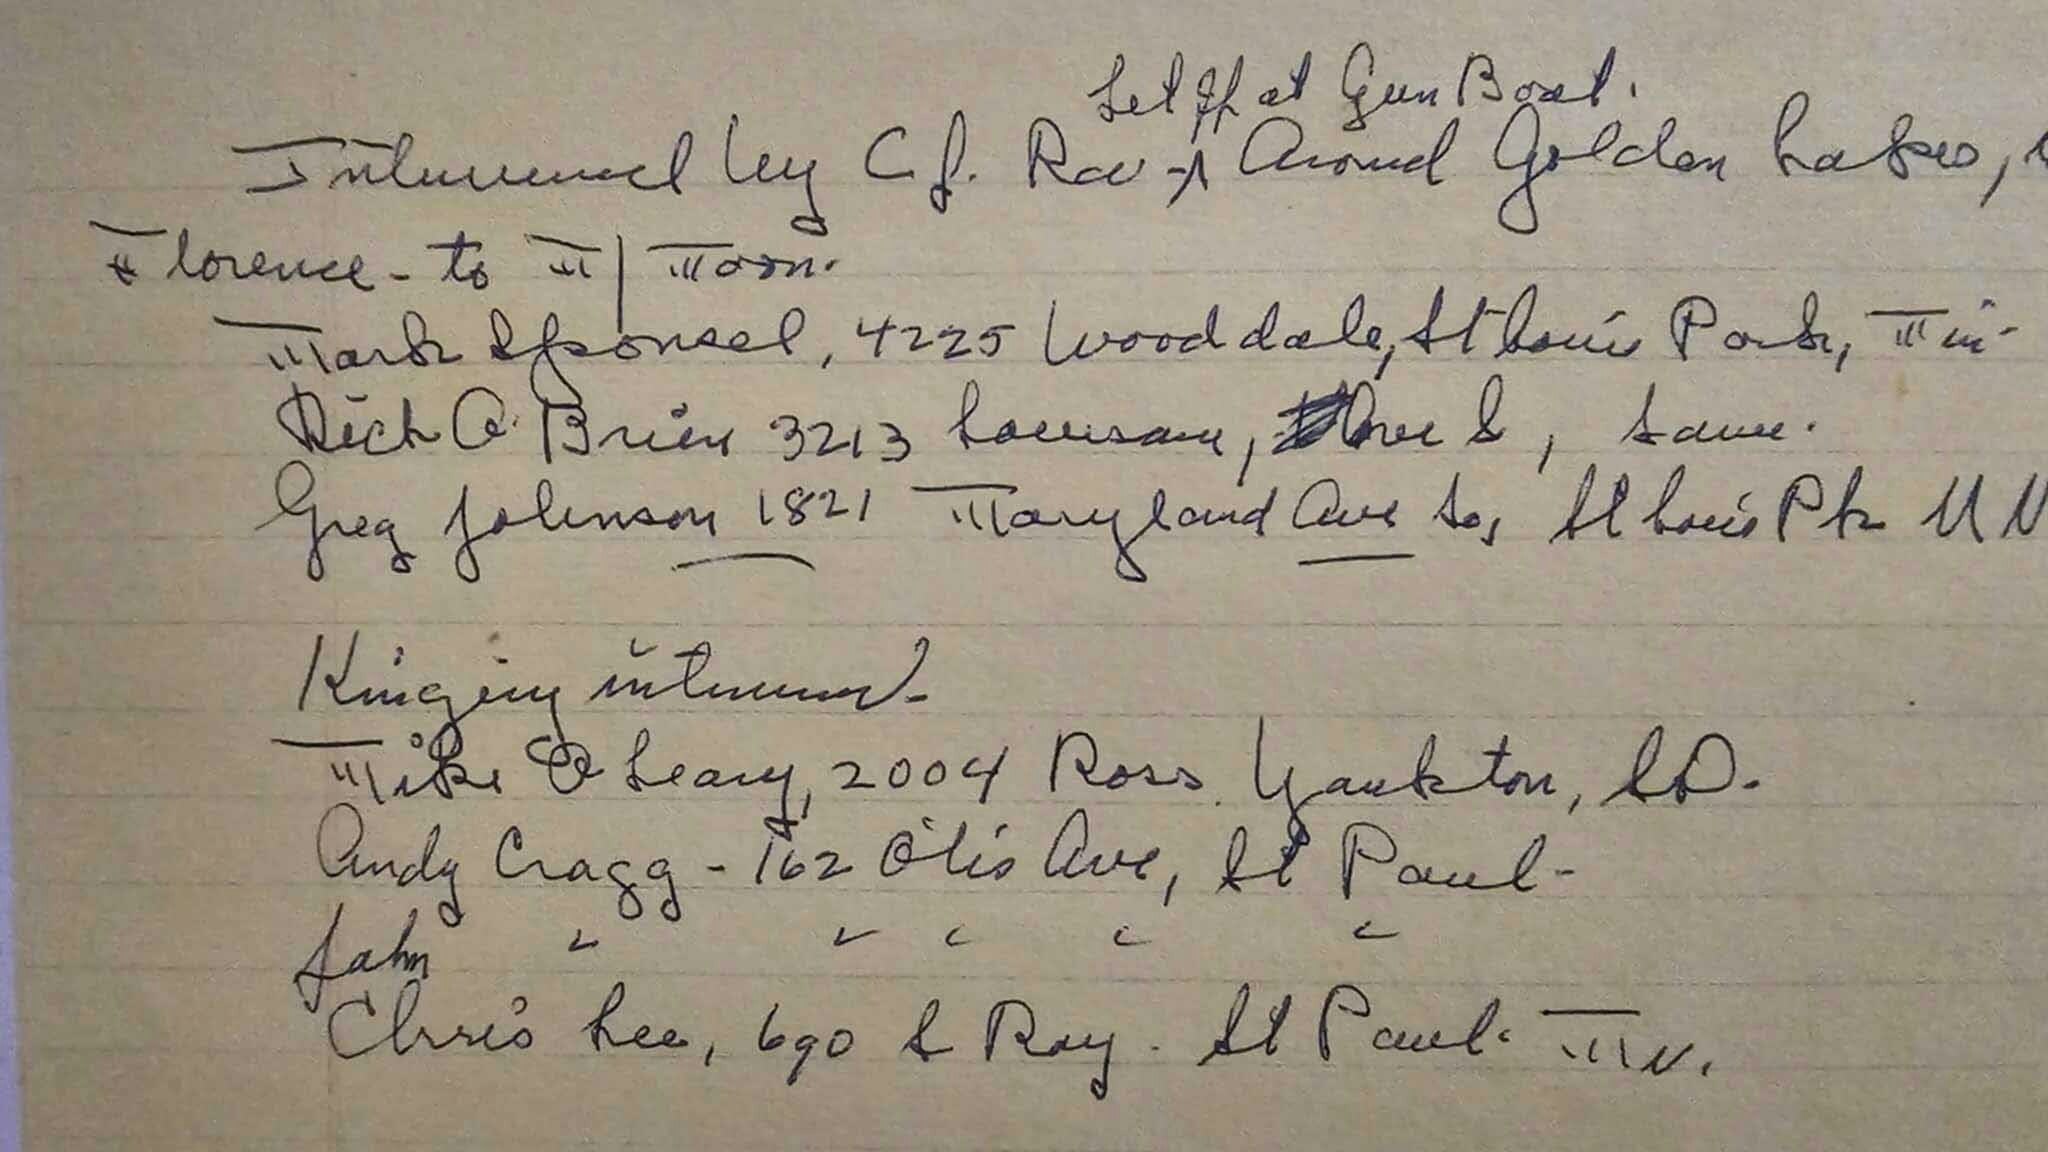 Let off at Gun Boat.
by C f. Rav - Around Golden Lakes,
Florence - to Moon.
Mark Sponsel, 4225 Wooddale, St Louis Park, Min-
Rich O'Brien 3213 Louisiana, Ave S, Same.
Greg Johnson 1821 Maryland Ave So, St Louis Pk MN
Mike O Leary, 2004 Ross Yankton, SD.
Andy Cragg - 162 Otis Ave, St Paul -
John " " " " "
Chris Lee, 690 S Roy. St Paul. MN.